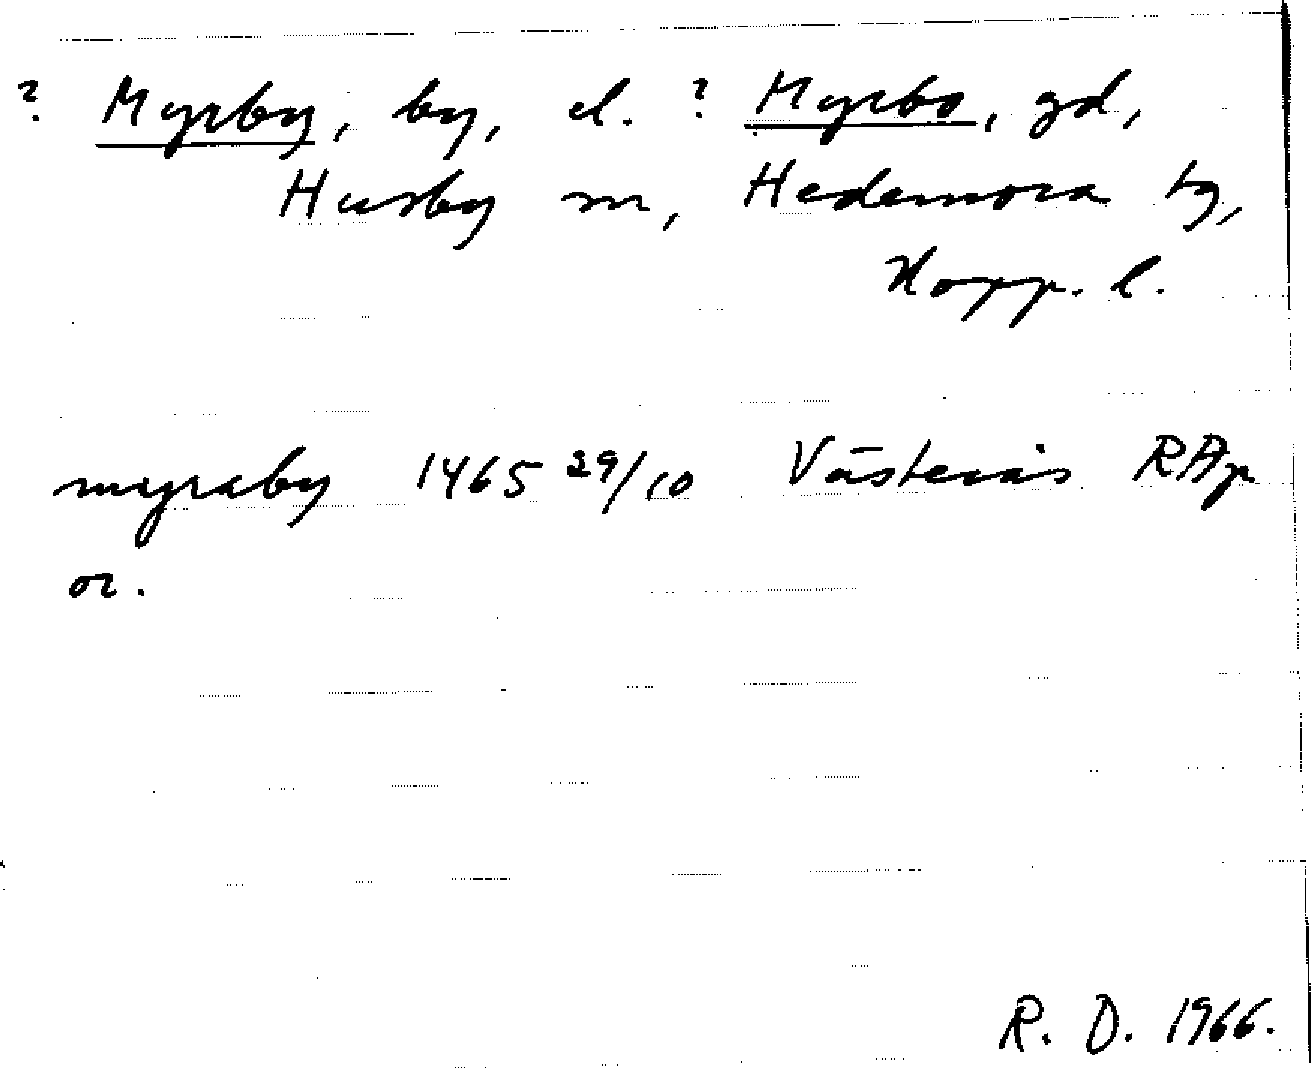 ? Myrby, by, el. ? Myrbo, gd,
Husby sn, Hedemora tg,
Kopp. l.
myraby 1465 29/10 Västerås RAp
or.
R. D. 1966.